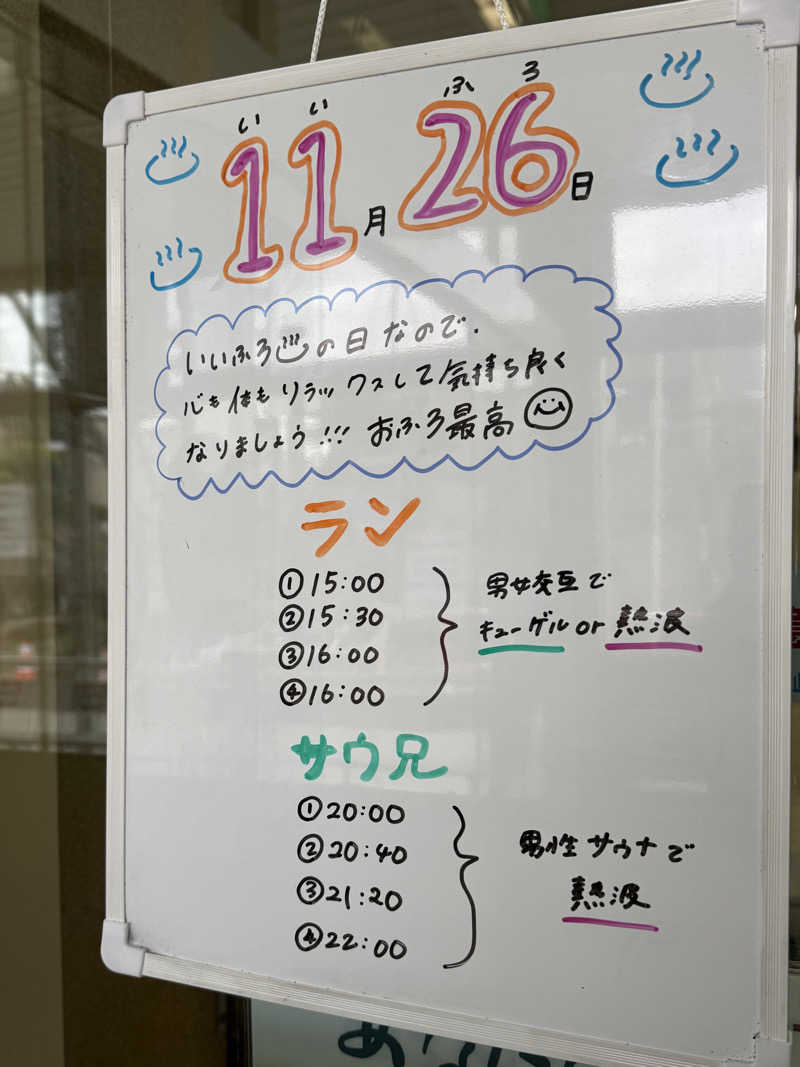 いい ふろ
11月26日
いいふろ♨の日なので、
心も体もリラックスして気持ち良く
なりましょう!!! おふろ最高
ラン
①15:00
②15:30
③16:00
④16:00
男女交互で
キューゲル or 熱波
サウ兄
①20:00
②20:40
③21:20
④22:00
男性サウナで
熱波